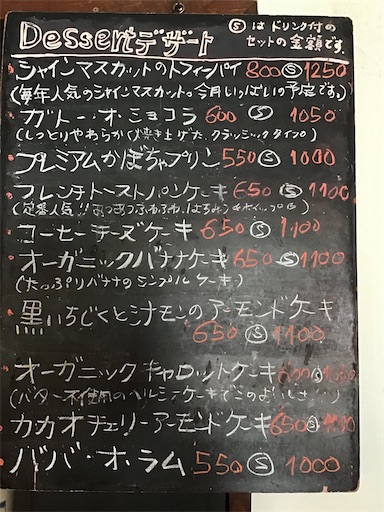 Dessert デザート
Ⓢ は ドリンク付の
セットの金額です。
シャインマスカットのトフィーパイ 800 Ⓢ 1250
(毎年人気のシャインマスカット。今月いっぱいの予定です。)
ガトー・オ・ショコラ 600 Ⓢ 1050
(しっとりやわらかく焼き上げた、クラッシックタイプ)
プレミアムかぼちゃプリン 550 Ⓢ 1000
フレンチトーストパンケーキ 650 Ⓢ 1100
(定番人気!!
コーヒーチーズケーキ 650 Ⓢ 1100
オーガニックバナナケーキ 650 Ⓢ 1100
(たっぷりバナナのシンプルケーキ)
黒いちじくとシナモンのアーモンドケーキ
650 Ⓢ 1100
オーガニックキャロットケーキ 600 Ⓢ 1050
(バター不使用のヘルシーケーキで
カカオチェリーアーモンドケーキ 650 Ⓢ 1100
ババ・オ・ラム 550 Ⓢ 1000